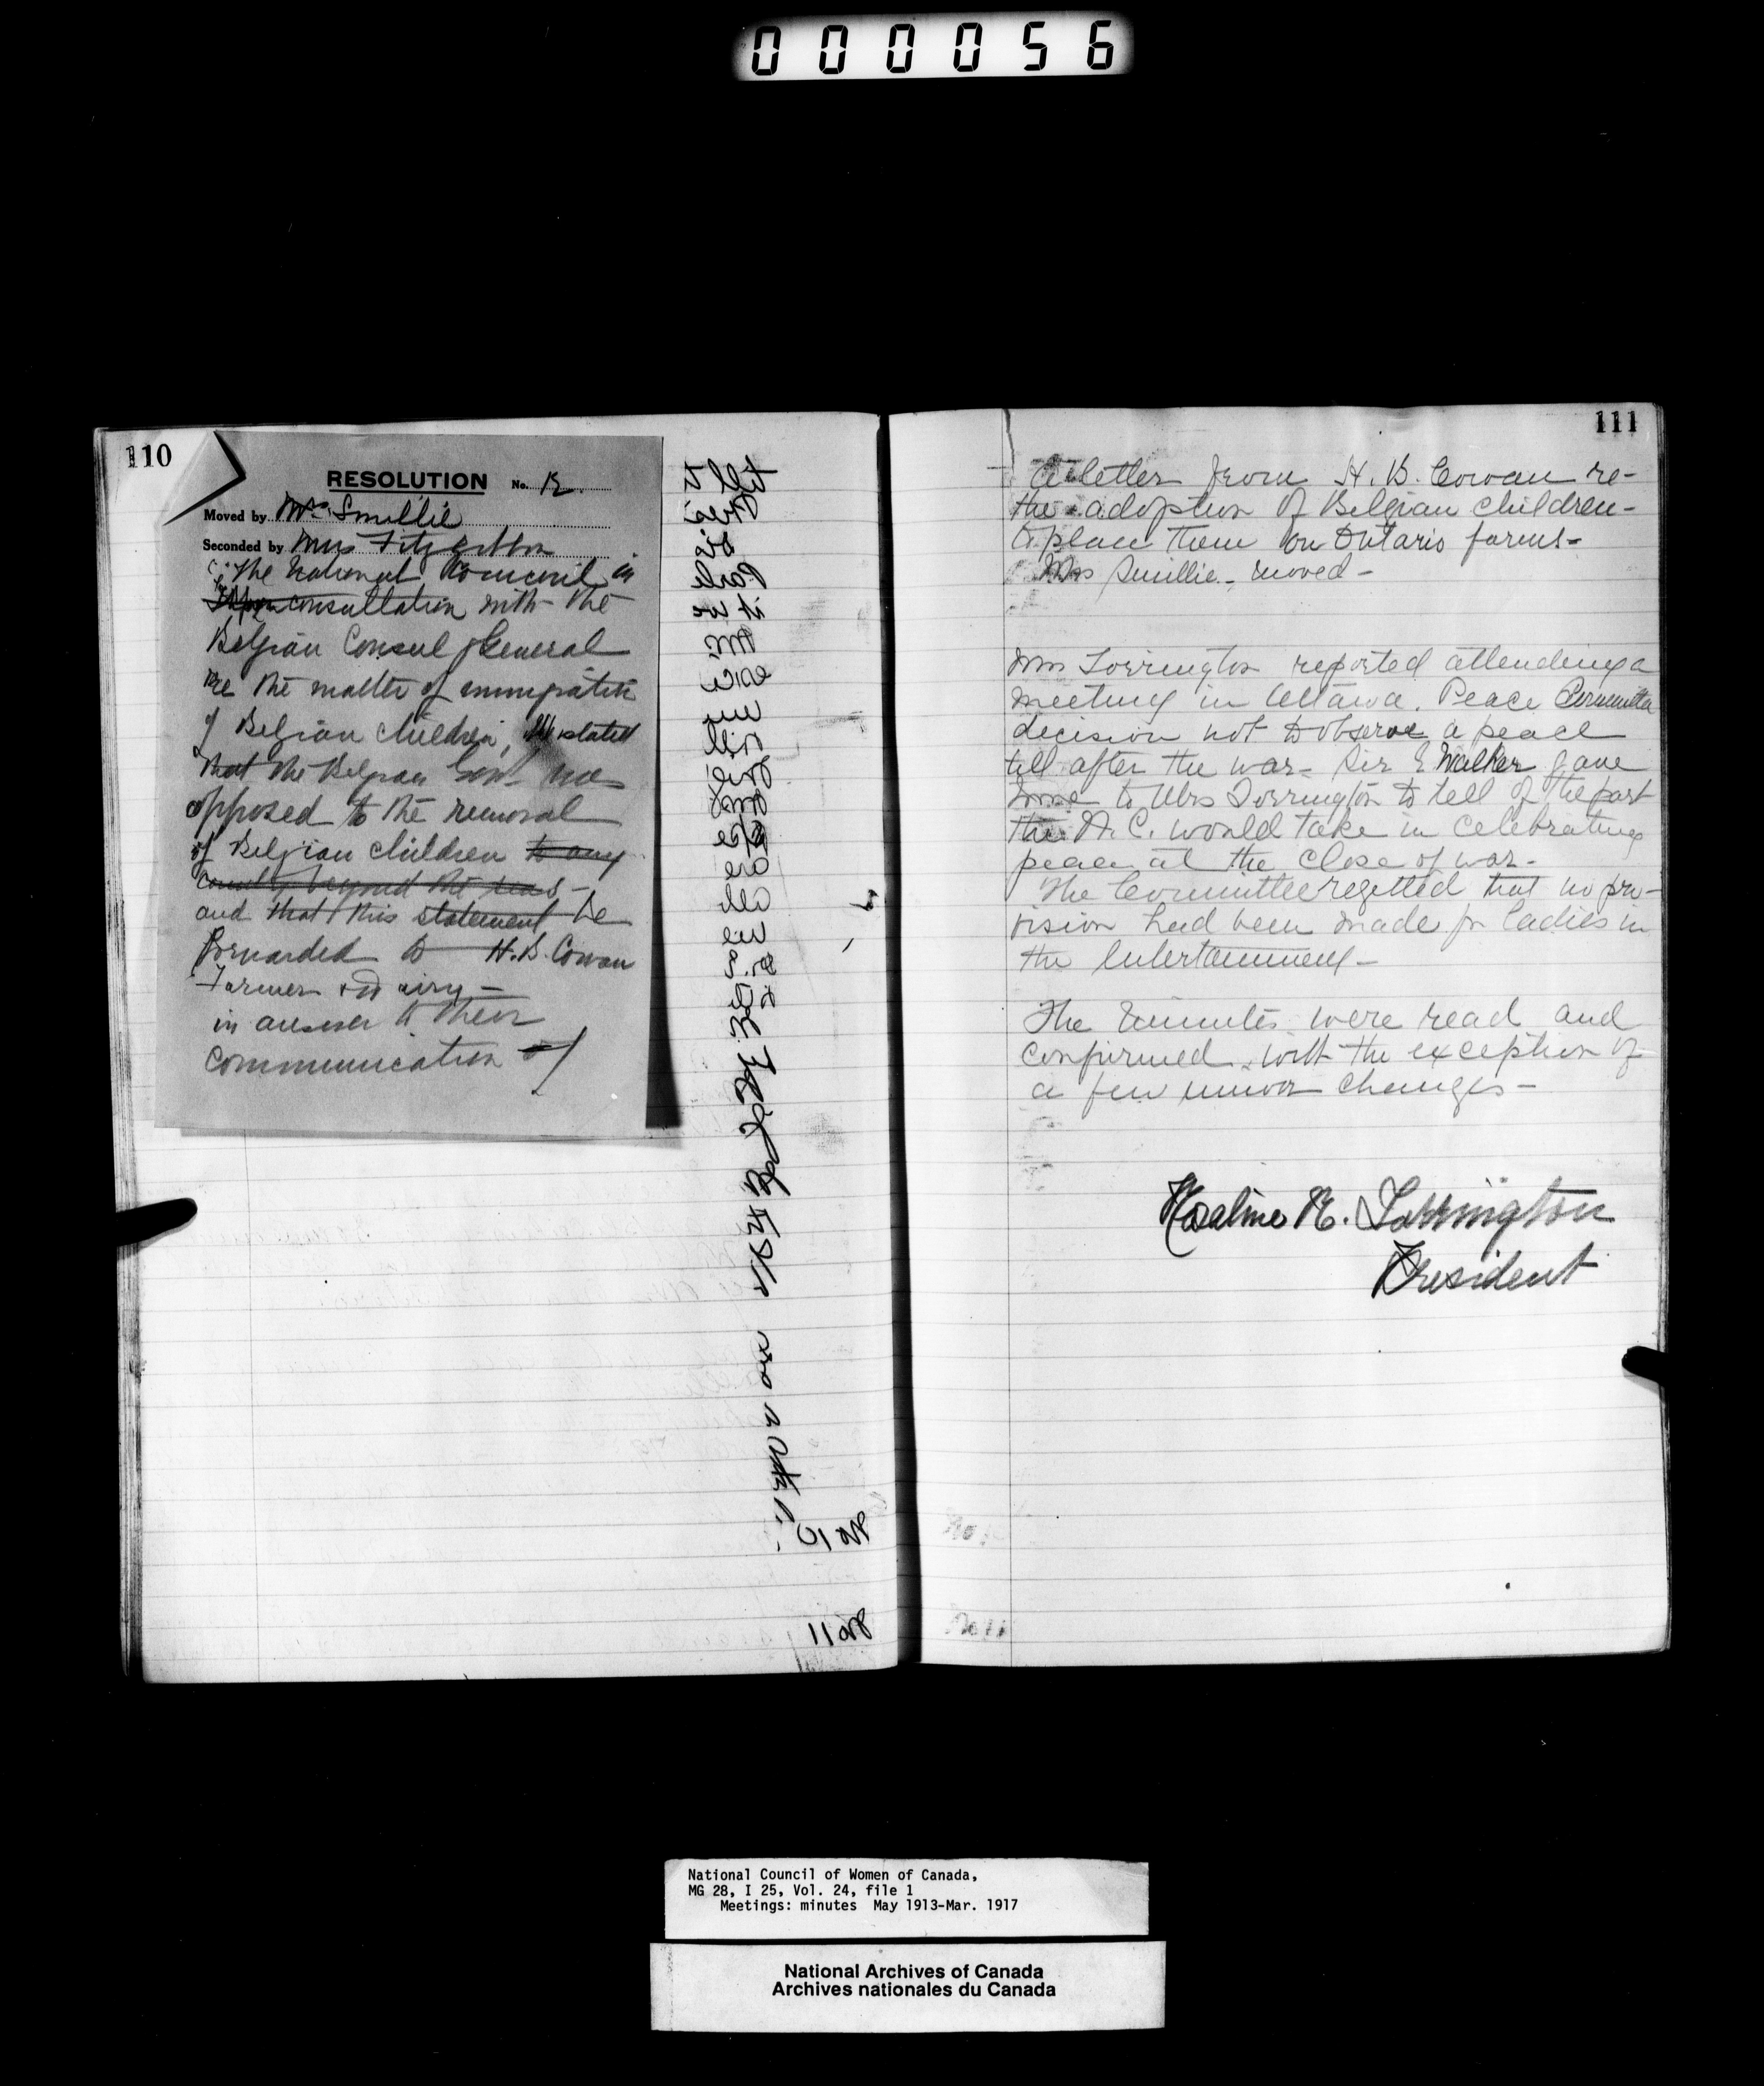 000056
110
RESOLUTION No. 12.
Moved by Mrs Smillie
Seconded by Mrs Fitzgibbon
The National Council in
consultation with the
Belgian Consul General
re the matter of immigration
of Belgian children, stated
that the Belgian Govt was
opposed to the removal
of Belgian children to any
country beyond the seas -
and that this statement be
forwarded to H. B. Cowan
Farmer & Dairy -
in answer to their
communication of
No 10
No 11
111
A letter from H. B. Cowan re-
the adoption of Belgian children -
to place them on Ontario farms -
Mrs Smillie - moved -
Mrs Torrington reported attending a
meeting in Ottawa. Peace Committee
decision not to observe a peace
till after the war - Sir E Walker gave
to Mrs Torrington to tell of the part
the N. C. would take in celebrating
peace at the close of war -
The Committee regetted that no pro-
vision had been made for ladies in
the entertainment -
The minutes were read and
confirmed with the exception of
a few minor changes -
Torrington
President
National Council of Women of Canada,
MG 28, I 25, Vol. 24, file 1
Meetings: minutes May 1913-Mar. 1917
National Archives of Canada
Archives nationales du Canada